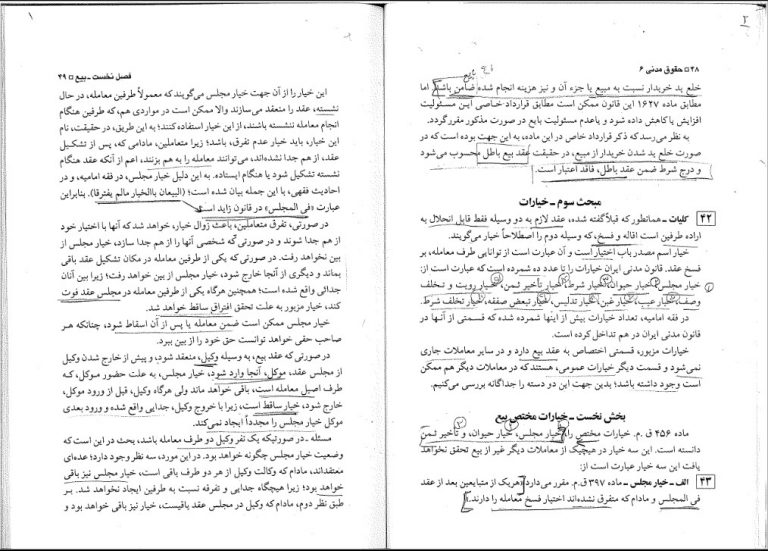 ۲
۴۸ □ حقوق مدنی ۶
بیع
خلع ید خریدار نسبت به مبیع یا جزء آن و نیز هزینه انجام شده ضامن باشد اما
مطابق ماده ۱۶۲۷ این قانون ممکن است مطابق قرارداد خاصی این مسئولیت
افزایش یا کاهش داده شود و یا عدم مسئولیت بایع در صورت مذکور مقرر گردد.
به نظر می‌رسد که ذکر قرارداد خاص در این ماده، به این جهت بوده است که در
صورت خلع ید شدن خریدار از مبیع، در حقیقت عقد بیع باطل محسوب می‌شود
و درج شرط ضمن عقد باطل، فاقد اعتبار است.
مبحث سوم ـ خیارات
۴۲ کلیات ـ همانطور که قبلاً گفته شده، عقد لازم به دو وسیله فقط قابل انحلال به
اراده طرفین است اقاله و فسخ، که وسیله دوم را اصطلاحاً خیار می‌گویند.
خیار اسم مصدر باب اختیار است و آن عبارت است از توانایی طرف معامله، بر
فسخ عقد. قانون مدنی ایران خیارات را تا عدد ده شمرده است که عبارت است از:
خیار مجلس، خیار حیوان، خیار شرط، خیار تأخیر ثمن، خیار رویت و تخلف
وصف، خیار عیب، خیار غبن، خیار تدلیس، خیار تبعض صفقه، خیار تخلف شرط.
در فقه امامیه، تعداد خیارات بیش از اینها شمرده شده که قسمتی از آنها در
قانون مدنی ایران در هم تداخل کرده است.
خیارات مزبور، قسمتی اختصاص به عقد بیع دارد و در سایر معاملات جاری
نمی‌شود و قسمت دیگر خیارات عمومی، هستند که در معاملات دیگر هم ممکن
است وجود داشته باشد؛ بدین جهت این دو دسته را جداگانه بررسی می‌کنیم.
بخش نخست ـ خیارات مختص بیع
ماده ۴۵۶ ق.م. خیارات مختص را، خیار مجلس، خیار حیوان، و تأخیر ثمن
دانسته است. این سه خیار در هیچیک از معاملات دیگر غیر از بیع تحقق نخواهد
یافت این سه خیار عبارت است از:
۴۳ الف ـ خیار مجلس ـ ماده ۳۹۷ ق.م. مقرر می‌دارد «هریک از متبایعین بعد از عقد
فی المجلس و مادام که متفرق نشده‌اند اختیار فسخ معامله را دارند.»
۱
فصل نخست ـ بیع □ ۴۹
این خیار را از آن جهت خیار مجلس می‌گویند که معمولاً طرفین معامله، در حال
نشسته، عقد را منعقد می‌سازند والا ممکن است در مواردی هم، که طرفین هنگام
انجام معامله ننشسته باشند، از این خیار استفاده کنند؛ به این طریق، در حقیقت، نام
این خیار، باید خیار عدم تفرق، باشد؛ زیرا متعاملین، مادامی که، پس از تشکیل
عقد، از هم جدا نشده‌اند، می‌توانند معامله را به هم بزنند، اعم از آنکه عقد هنگام
نشسته تشکیل شود یا هنگام ایستاده. به این دلیل خیار مجلس، در فقه امامیه، و در
احادیث فقهی، با این جمله بیان شده است؛ (البیعان باالخیار مالم یفترقا). بنابراین
عبارت «فی المجلس» در قانون زاید است.
در صورتی، تفرق متعاملین، باعث زوال خیار، خواهد شد که آنها با اختیار خود
از هم جدا شوند و در صورتی که شخصی آنها را از هم جدا سازد، خیار مجلس از
بین نخواهد رفت. در صورتی که یکی از طرفین معامله در مکان تشکیل عقد باقی
بماند و دیگری از آنجا خارج شود، خیار مجلس از بین خواهد رفت؛ زیرا بین آنان
جدائی واقع شده است؛ همچنین هرگاه یکی از طرفین معامله در مجلس عقد فوت
کند، خیار مزبور به علت تحقق افتراق ساقط خواهد شد.
خیار مجلس ممکن است ضمن معامله یا پس از آن اسقاط شود، چنانکه هر
صاحب حقی خواهد توانست حق خود را از بین ببرد.
در صورتی که عقد بیع، به وسیله وکیل، منعقد شود، و پیش از خارج شدن وکیل
از مجلس عقد، موکل، آنجا وارد شود، خیار مجلس، به علت حضور موکل، که
طرف اصیل معامله است، باقی خواهد ماند ولی هرگاه وکیل، قبل از ورود موکل،
خارج شود، خیار ساقط است، زیرا با خروج وکیل، جدایی واقع شده و ورود بعدی
موکل خیار مجلس را مجدداً ایجاد نمی‌کند.
مسئله ـ در صورتیکه یک نفر وکیل دو طرف معامله باشد، بحث در این است که
وضعیت خیار مجلس چگونه خواهد بود. در این مورد، سه نظر وجود دارد؛ عده‌ای
معتقداند، مادام که وکالت وکیل از هر دو طرف باقی است، خیار مجلس نیز باقی
خواهد بود؛ زیرا هیچگاه جدایی و تفرقه نسبت به طرفین ایجاد نخواهد شد. بر
طبق نظر دوم، مادام که وکیل در مجلس عقد باقیست، خیار نیز باقی خواهد بود و